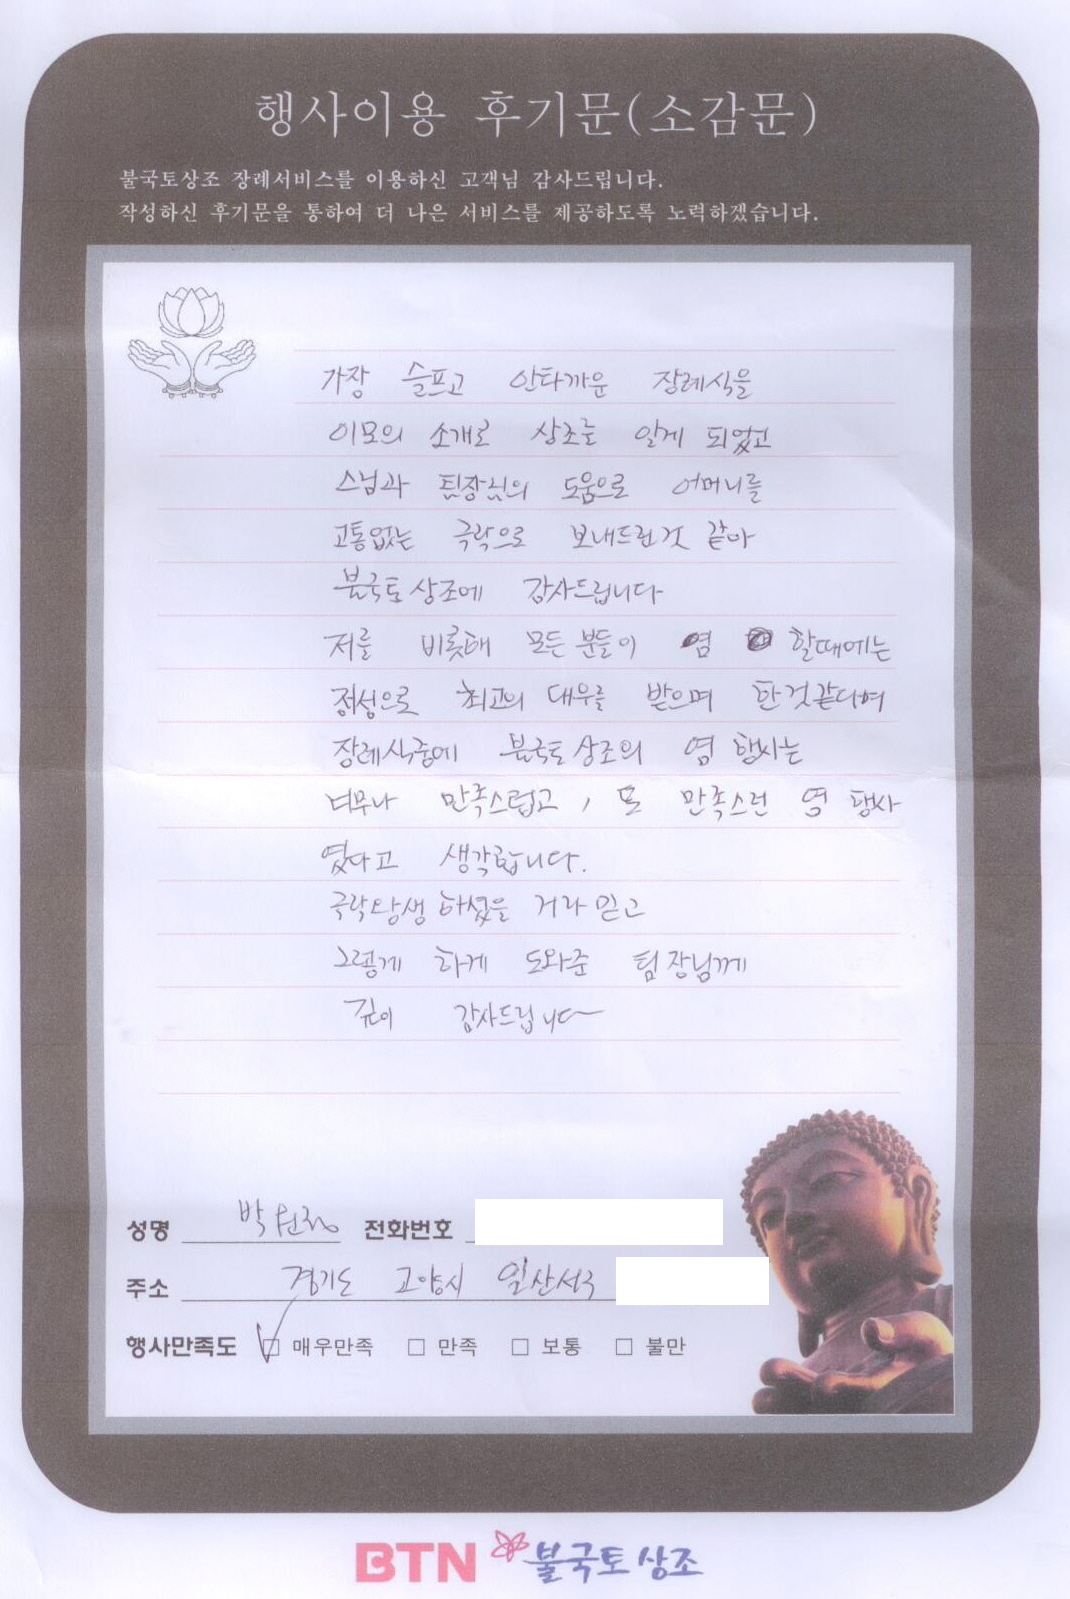 행사이용 후기문(소감문)
불국토상조 장례서비스를 이용하신 고객님 감사드립니다.
작성하신 후기문을 통하여 더 나은 서비스를 제공하도록 노력하겠습니다.
가장 슬프고 안타까운 장례식을
이모의 소개로 상조를 알게 되었고
스님과 팀장님의 도움으로 어머니를
고통없는 극락으로 보내드린것 같아
불국토 상조에 감사드립니다
저를 비롯해 모든 분들이 염 할때에는
정성으로 최고의 대우를 받으며 한것같다며
장례식중에 불국토 상조의 염 행사는
너무나 만족스럽고, 또 만족스런 염 행사
였다고 생각합니다.
극락왕생 하셨을 거라 믿고
그렇게 하게 도와준 팀장님께
깊이 감사드립니다
성명 박 전화번호
주소 경기도 고양시 일산서구
행사만족도 □ 매우만족 □ 만족 □ 보통 □ 불만
BTN 불국토 상조